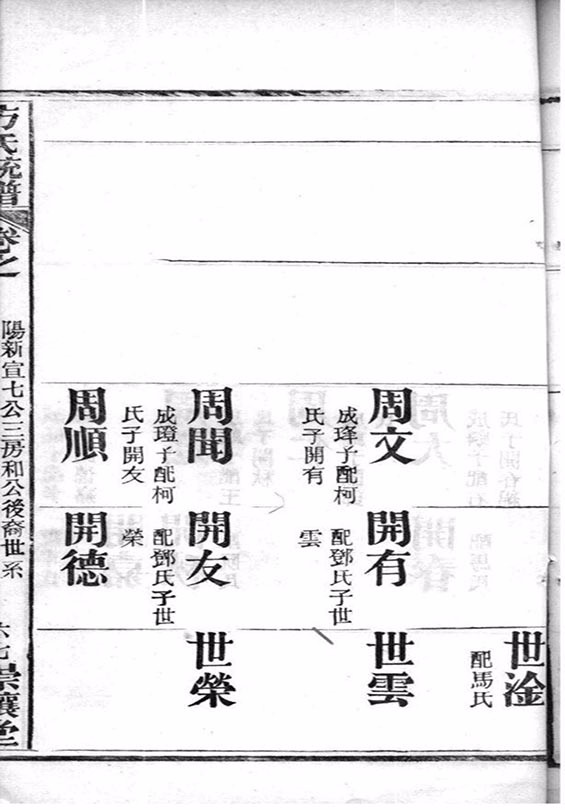 世淦
配馬氏
周文
成琒子配柯
氏子開有
開有
配鄧氏子世
雲
世雲
周聞
成璒子配柯
氏子開友
開友
配鄧氏子世
榮
世榮
周順
開德
方氏統譜
卷之
陽新宣七公三房和公後裔世系
六七
崇讓堂